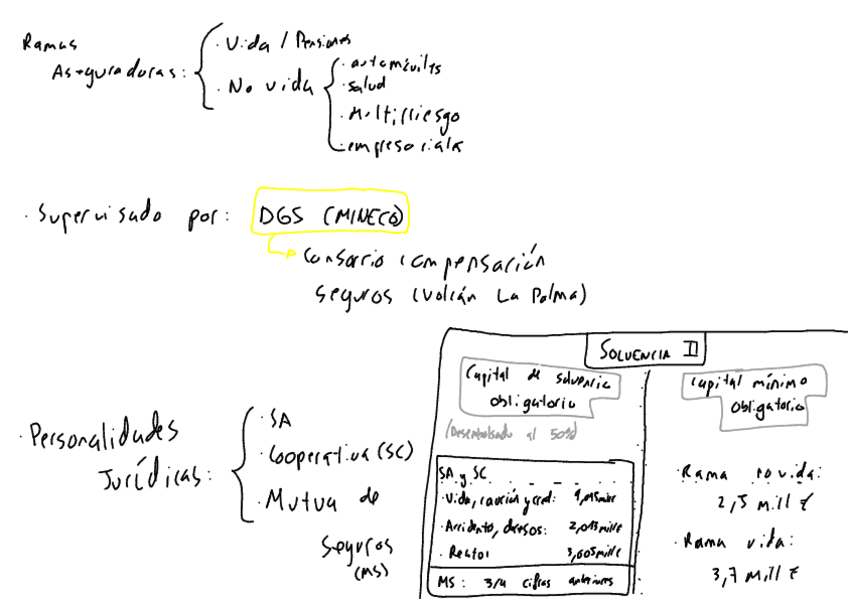 Ramas
Aseguradoras:
· Vida / Pensiones
· No vida
· automóviles
· salud
· Multirriesgo
· empresariales
· Supervisado por: DGS (MINECO)
Consorcio compensación
seguros (Volcán La Palma)
· Personalidades
Jurídicas:
· SA
· Cooperativa (SC)
· Mutua de
Seguros
(MS)
SOLVENCIA II
Capital de solvencia
obligatorio
(Desembolsado al 50%)
SA y SC
· Vida, caución y cred:
· Accidente, decesos: 2,013 mill €
· Resto: 3,005 mill €
MS: 3/4 cifras anteriores
Capital mínimo
obligatorio
· Rama no vida:
2,5 mill €
· Rama vida:
3,7 mill €